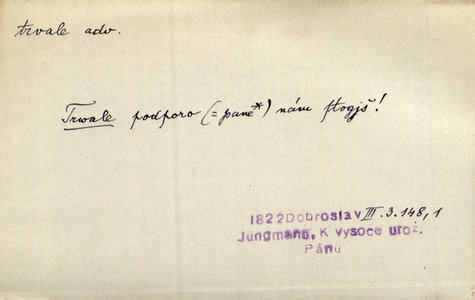 trvale adv.
Trwale podporo (= pane*) nám stogjš!
1822 Dobroslav III. 3. 148, 1
Jungmann, K vysoce urož.
Pánu